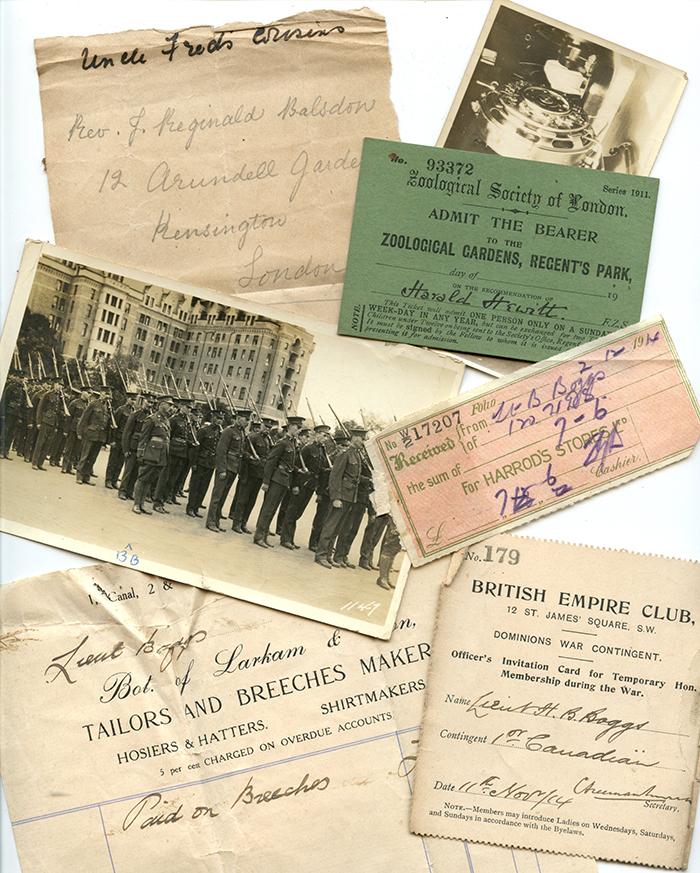 Uncle Fred's Cousins
Rev. J. Reginald Balsdon
12 Arundell Garde
Kensington
London
No. 93372
Series 1911.
Zoological Society of London.
ADMIT THE BEARER
TO THE
ZOOLOGICAL GARDENS, REGENT'S PARK,
day of 19
ON THE RECOMMENDATION OF
Harald Hewitt. F.Z.S.
NOTE.
This Ticket will admit ONE PERSON ONLY on a SUNDAY
WEEK-DAY IN ANY YEAR, but can be exchanged for two
Children under Twelve on being sent to the Society's Office, Regent
It must be signed by the Fellow to whom it is issued
senting it for admission.
No W/Z 17207 Folio 2 12 1914
Received from Lt B Boggs
of
the sum of 7-6
For HARROD'S STORES LTD
Cashier.
£ 7-6
BB
1149
1, Canal, 2 &
Lieut Boggs
Bot. of Larkam & on,
TAILORS AND BREECHES MAKER
HOSIERS & HATTERS. SHIRTMAKERS
5 per cent CHARGED ON OVERDUE ACCOUNTS
Paid on Breeches
No. 179
BRITISH EMPIRE CLUB,
12 ST. JAMES' SQUARE, S.W.
DOMINIONS WAR CONTINGENT.
Officer's Invitation Card for Temporary Hon.
Membership during the War.
Name Lieut H. B. Boggs
Contingent 1st Canadian
Date 11th Nov/14
Secretary.
NOTE.—Members may introduce Ladies on Wednesdays, Saturdays,
and Sundays in accordance with the Byelaws.